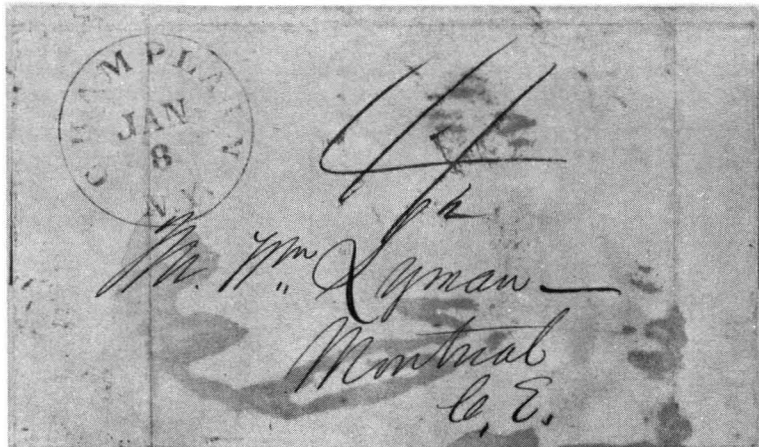 CHAMPLAIN
JAN
8
N.Y.
Mr. Wm Lyman
Montreal
C. E.